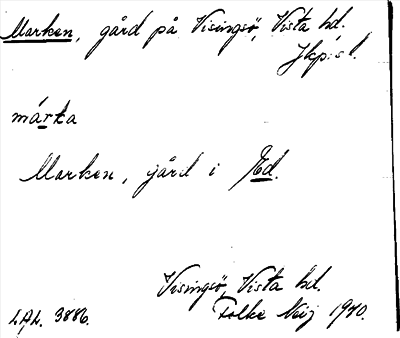 Marken, gård på Visingsö, Vista hd.
Jkp:s l.
márka
Marken, gård i Ed.
Visingsö, Vista hd.
LAL. 3886. Folke Neij 1940.